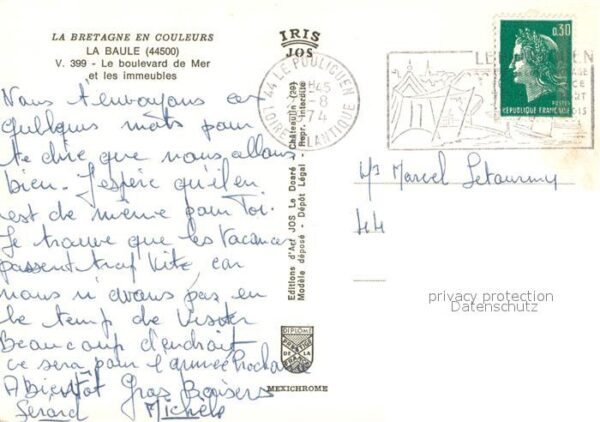 LA BRETAGNE EN COULEURS
LA BAULE (44500)
V. 399 - Le boulevard de Mer
et les immeubles
IRIS
JOS
Nous t'envoyons ces
quelques mots pour
te dire que nous allons
bien. J'espère qu'il en
est de même pour Toi.
Je trouve que les Vacances
passent trop vite car
nous n'avons pas eu
le temps de visiter
Beaucoup d'endroit
ce sera pour l'année Prochaine
A Bientôt Gros Baisers
Gérard Michèle
Editions d'Art JOS Le Doaré - Châteaulin (29)
Modèle déposé - Dépôt Légal - Repr. Interdite
DIPLOME
PRESTIGE
DE LA
FRANCE
MEXICHROME
44 LE POULIGUEN
LOIRE ATLANTIQUE
-8
74
0,30
POSTES
REPUBLIQUE FRANÇAISE
Marcel Letourmy
44
privacy protection
Datenschutz